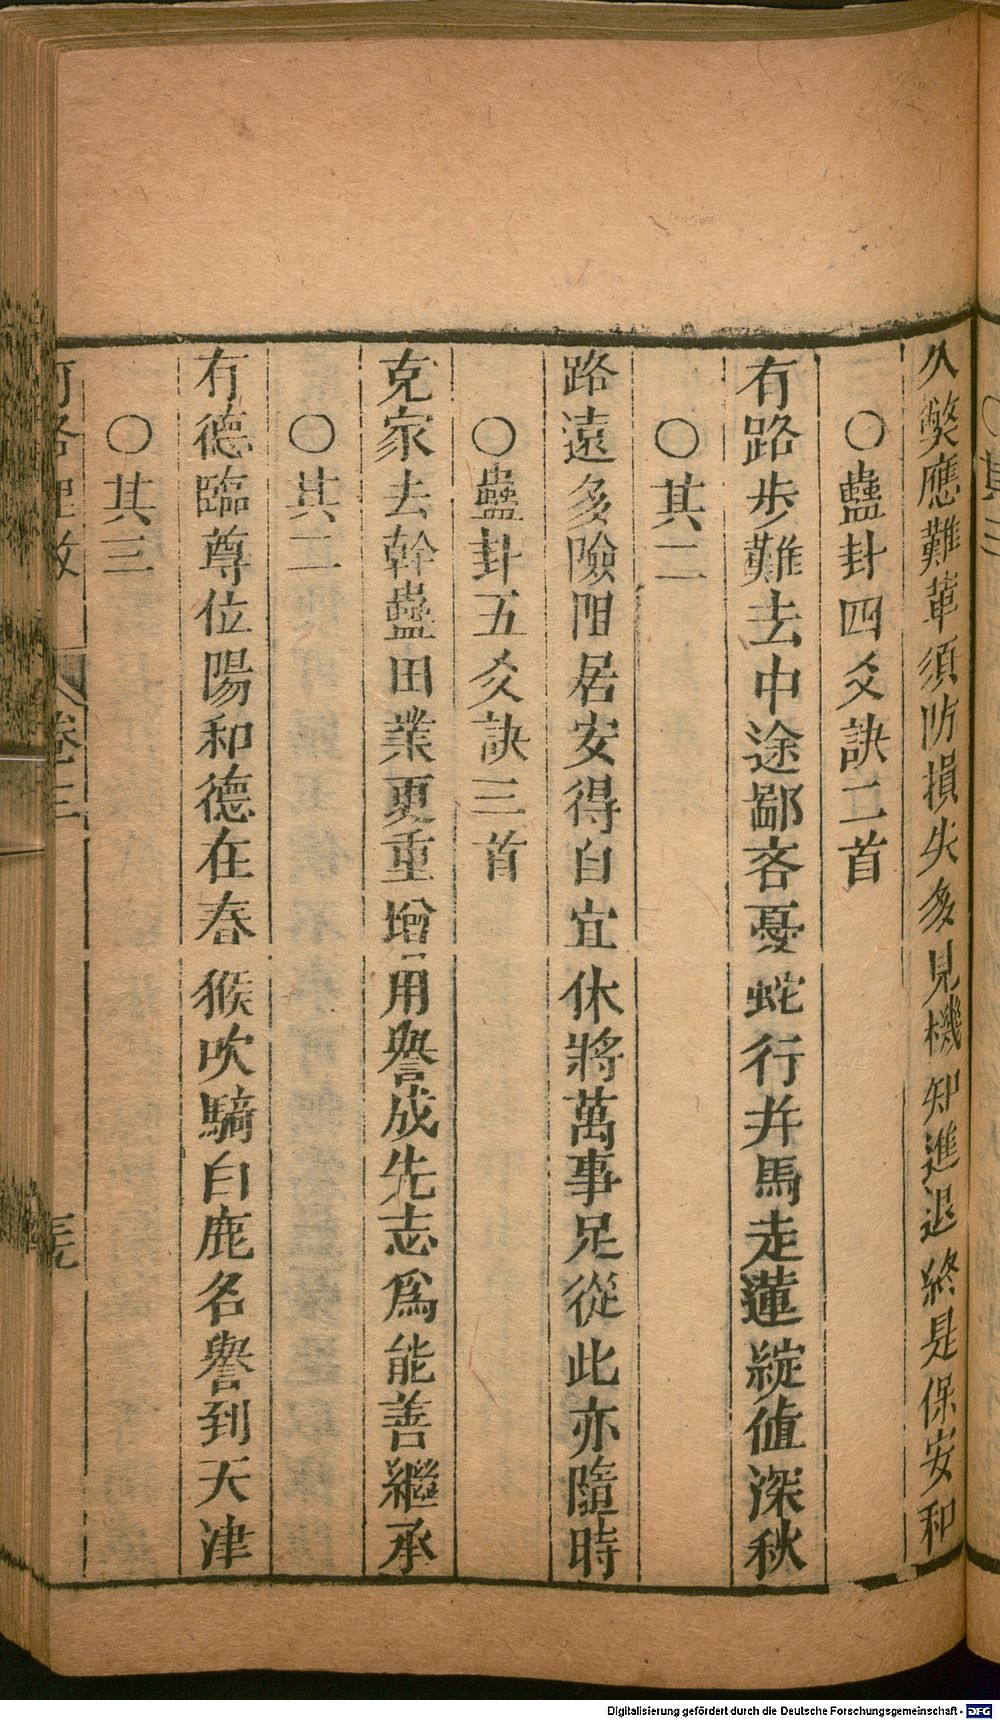 其三
久獘應難革須防損失多見機知進退終是保安和
○蠱卦四爻訣二首
有路步難去中途鄙吝憂蛇行并馬走蓮綻值深秋
○其二
路遠多險阻居安得自宜休將萬事足從此亦隨時
○蠱卦五爻訣三首
克家去幹蠱田業更重增用譽成先志爲能善繼承
○其二
有德臨尊位陽和德在春猴吹騎白鹿名譽到天津
○其三
河洛理數 卷三 三九
Digitalisierung gefördert durch die Deutsche Forschungsgemeinschaft - DFG